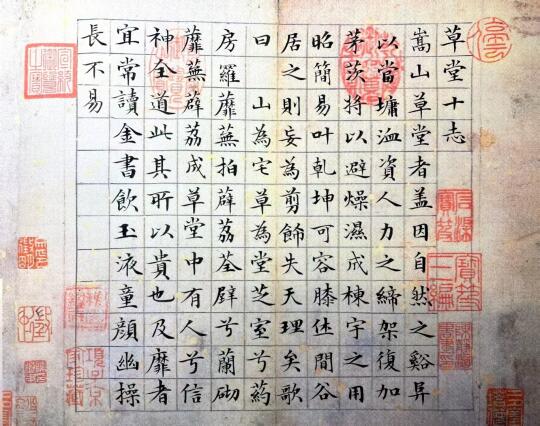 草堂十志
嵩山草堂者盖因自然之谿阜
以當墉洫資人力之締架復加
茅茨将以避燥濕成棟宇之用
昭簡易叶乾坤可容膝休間谷
居之則妄為剪餙失天理矣歌
曰山為宅草為堂芝室兮葯
房羅蘼蕪拍薜荔荃壁兮蘭砌
蘼蕪薜荔成草堂中有人兮信
宜常讀金書飲玉液童顔幽操
神全道此其所以貴也及靡者
長不易